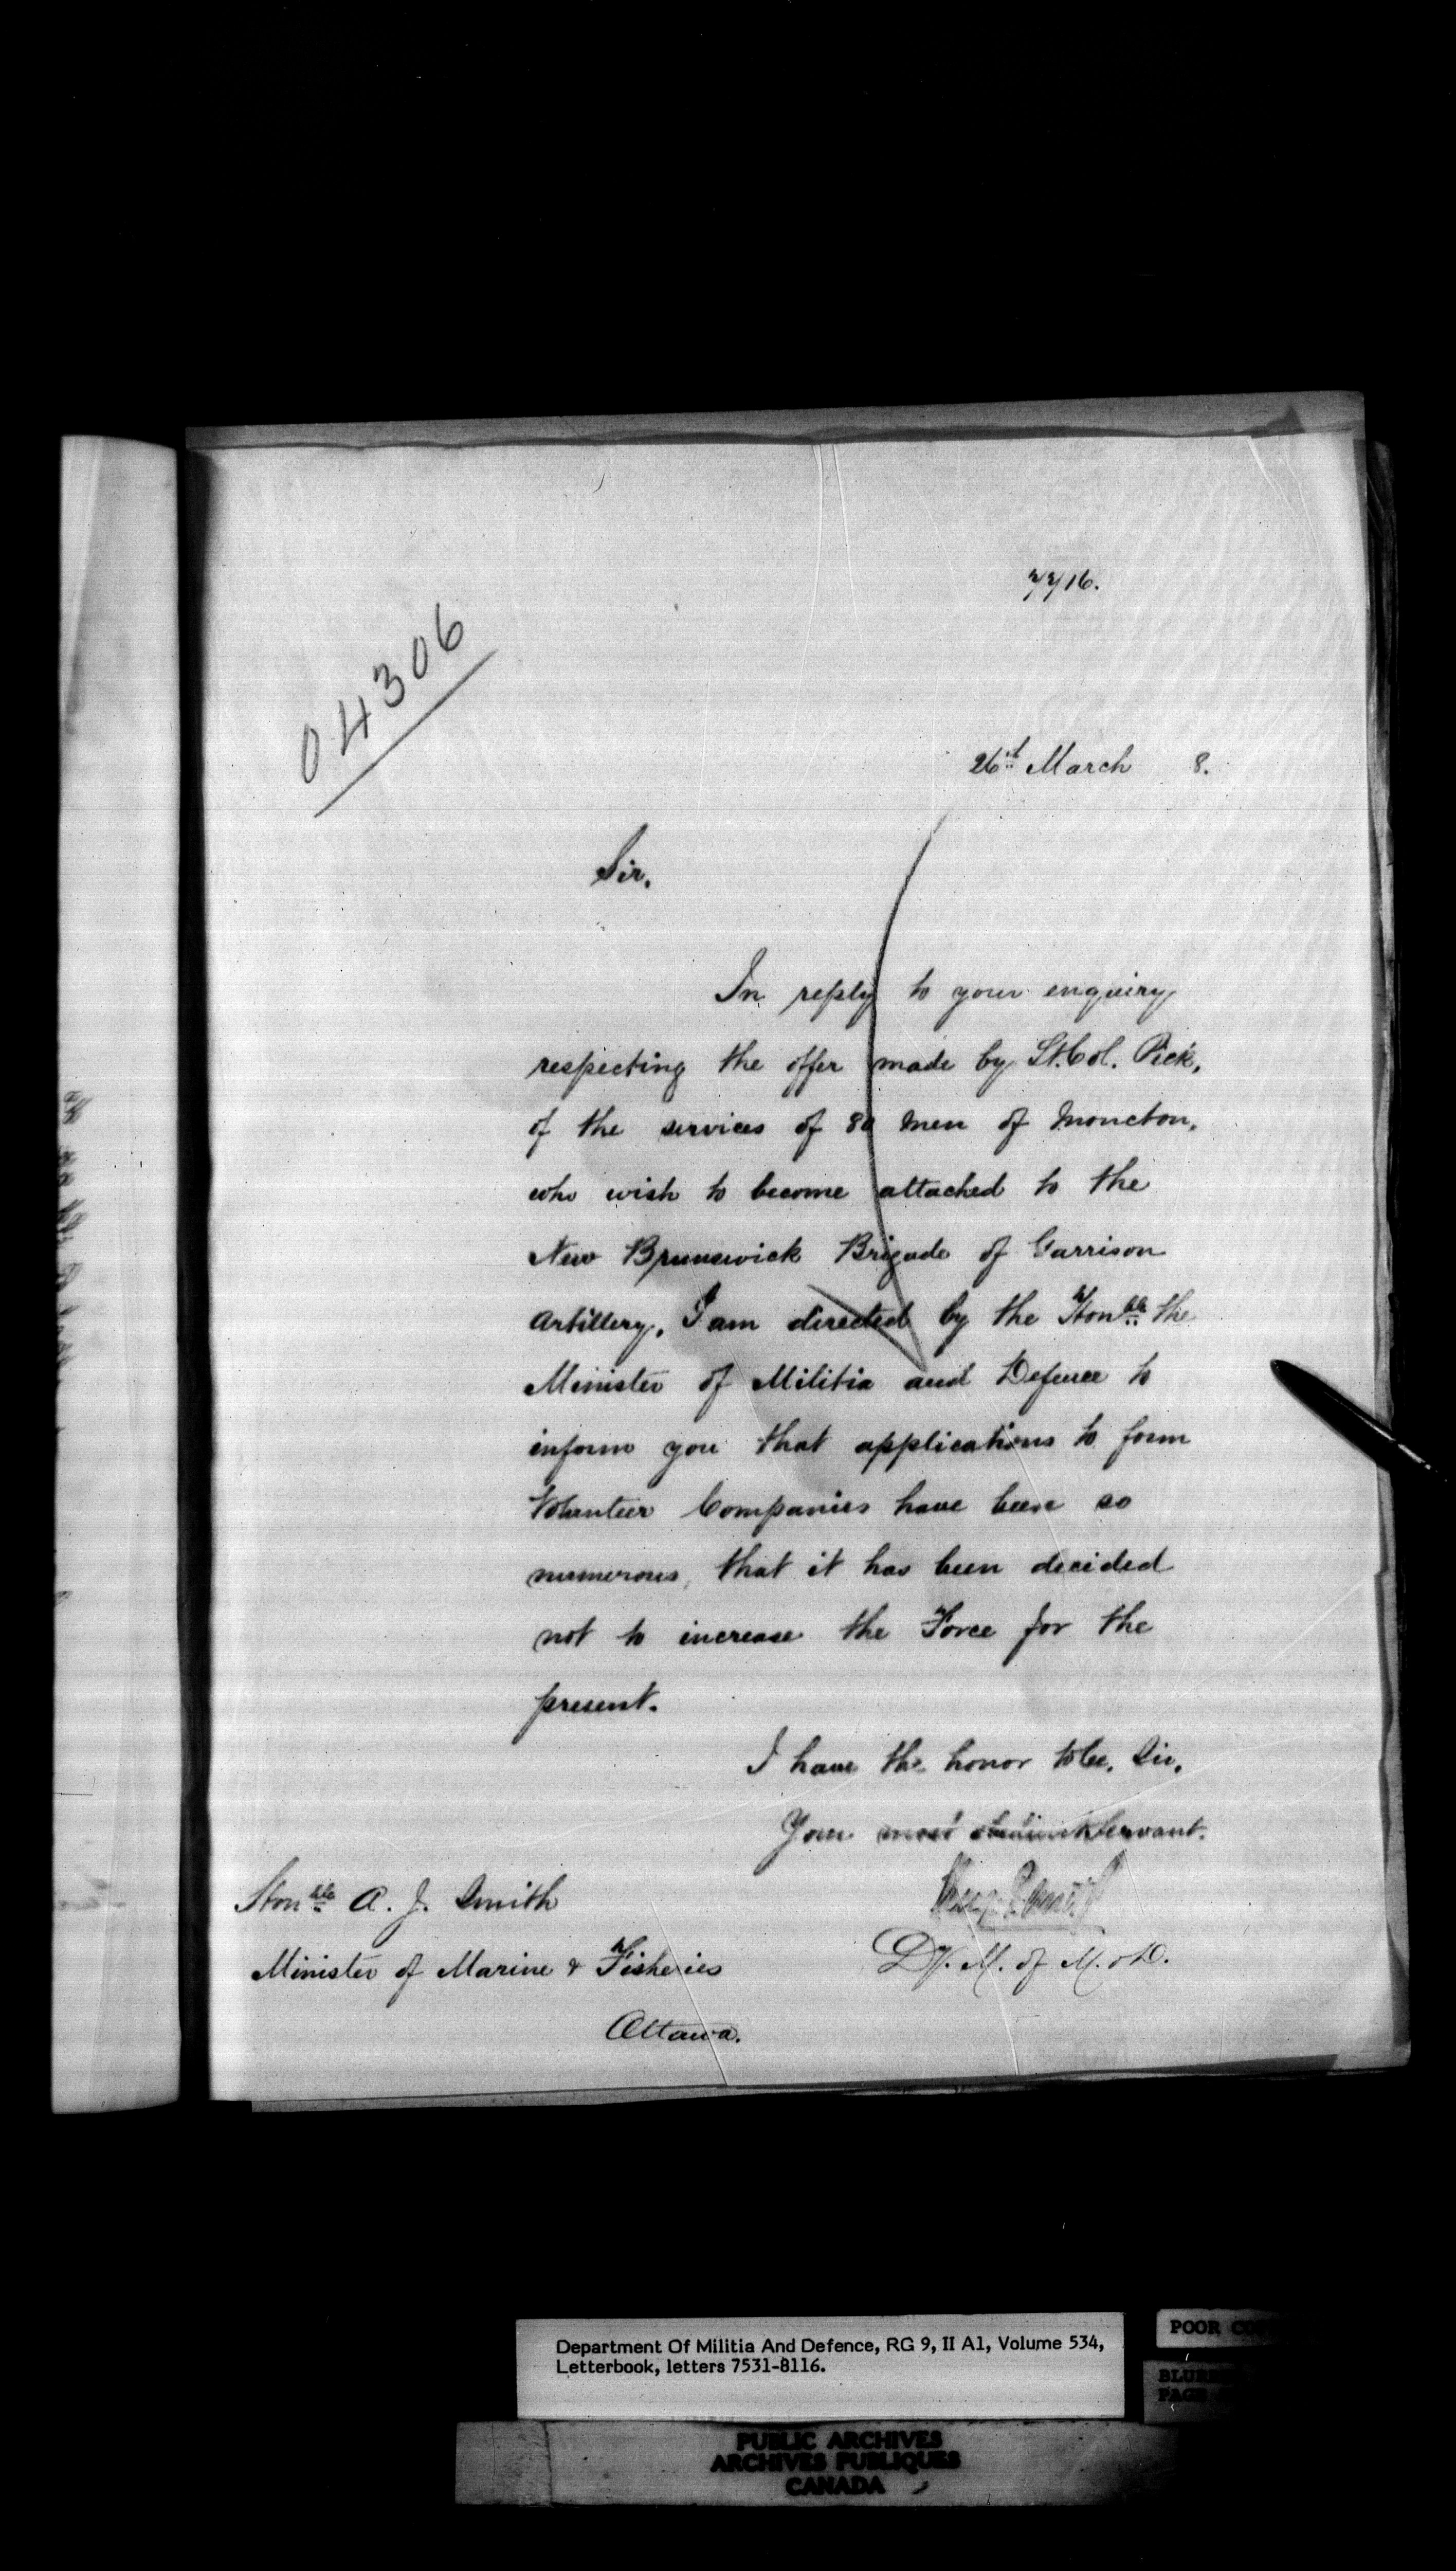 7716.
04306
26th March 8.
Sir,
In reply to your enquiry
respecting the offer made by Lt. Col. Pick,
of the services of 80 men of Moncton,
who wish to become attached to the
New Brunswick Brigade of Garrison
Artillery, I am directed by the Honble the
Minister of Militia and Defence to
inform you that applications to form
Volunteer Companies have been so
numerous, that it has been decided
not to increase the Force for the
present.
I have the honor to be, Sir,
Your most obedient Servant.
Dy. M. of M. & D.
Honble A. J. Smith
Minister of Marine & Fisheries
Ottawa.
Department Of Militia And Defence, RG 9, II A1, Volume 534,
Letterbook, letters 7531-8116.
POOR
PUBLIC ARCHIVES
ARCHIVES PUBLIQUES
CANADA